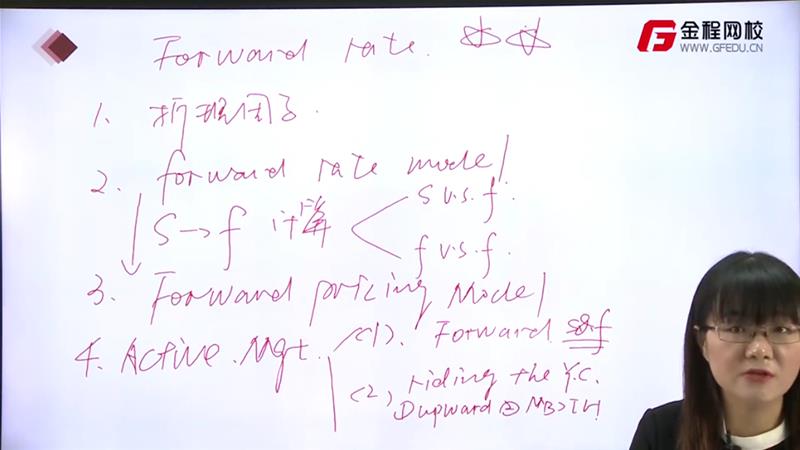 Forward rate.
金程网校
WWW.GFEDU.CN
1. 折现因子.
2. forward rate model
S→f 计算
S v.s. f.
f v.s. f.
3. Forward pricing Model
4. Active. Mgt.
(1). Forward
(2) riding the Y.C.
①upward ② MB>IH